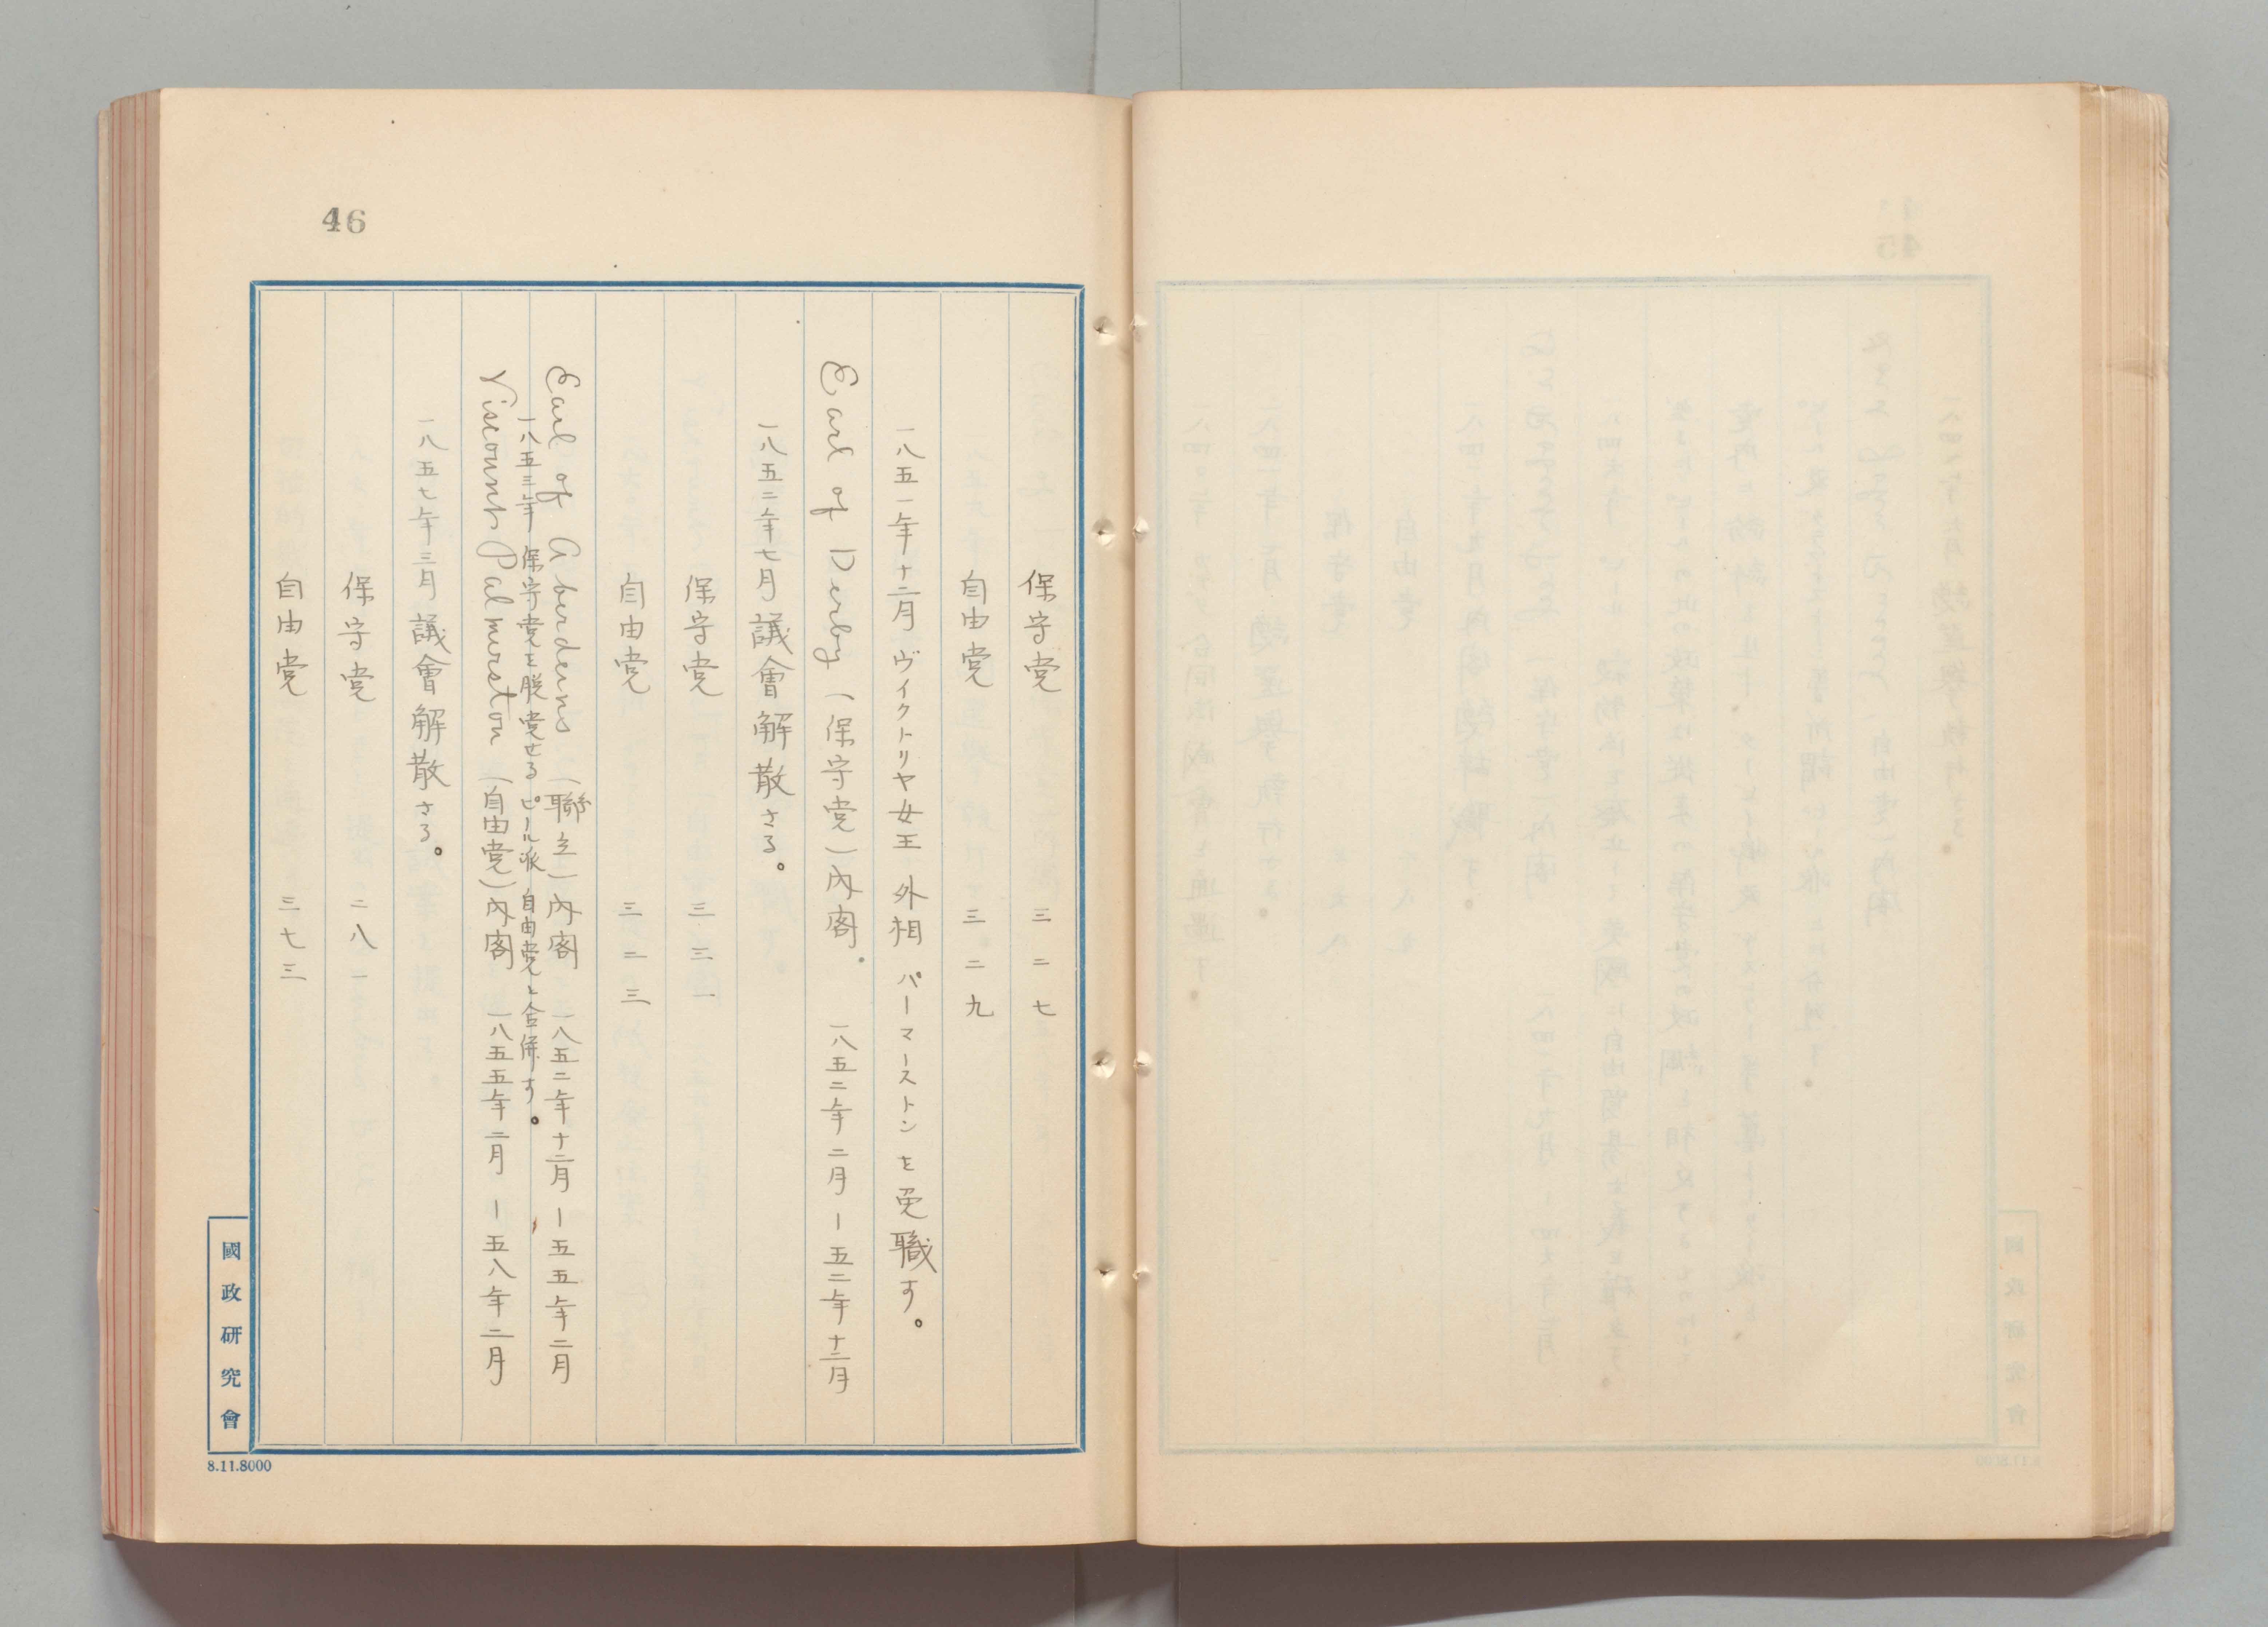 46
保守党 三二七
自由党 三二九
一八五一年十二月 ヴィクトリヤ女王 外相 パーマーストンを免職す。
Earl of Derby (保守党)内閣. 一八五二年二月―五二年十二月
一八五二年七月 議會解散さる。
保守党 三三一
自由党 三二三
Earl of Aberdeen (聯立)内閣 一八五二年十二月―五五年二月
一八五三年 保守党を脱党せるピール派 自由党と合併す。
Viscount Palmerston (自由党)内閣 一八五五年二月―五八年二月
一八五七年三月 議會解散さる。
保守党 二八一
自由党 三七三
國政研究會
8.11.8000